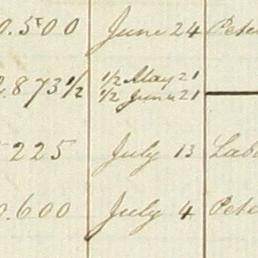 0.500 June 24 Pete
.873½ ½ May 21
½ June 21
225 July 13 Lab
0.600 July 4 Pete